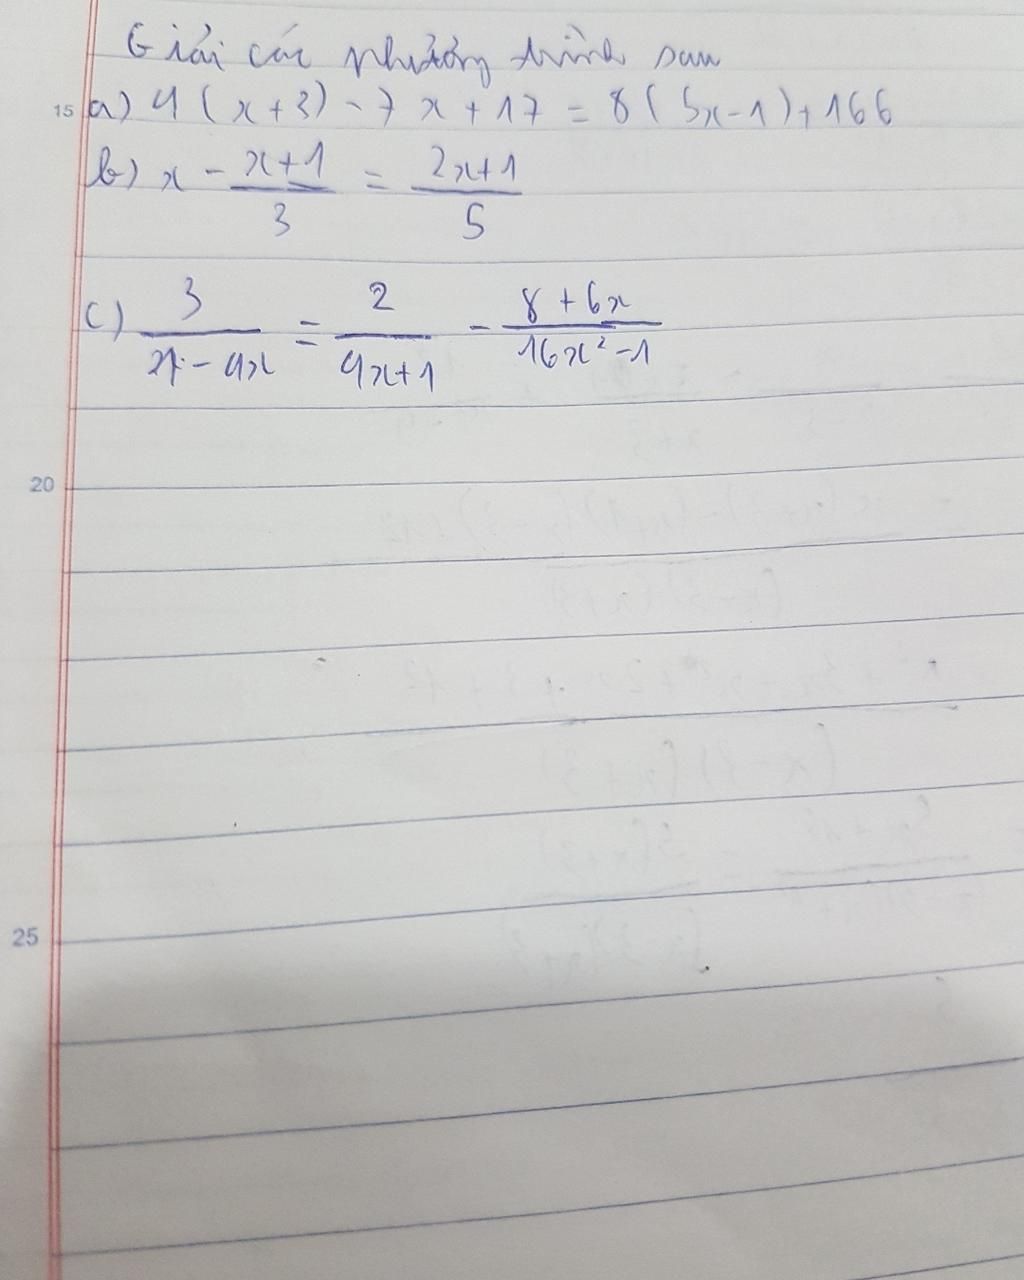 Giải các phương trình sau
15 a) 4(x+3) - 7x + 17 = 8(5x-1) + 166
b) x - \frac{x+1}{3} = \frac{2x+1}{5}
c) \frac{3}{1-4x} = \frac{2}{4x+1} - \frac{8+6x}{16x²-1}
20
25